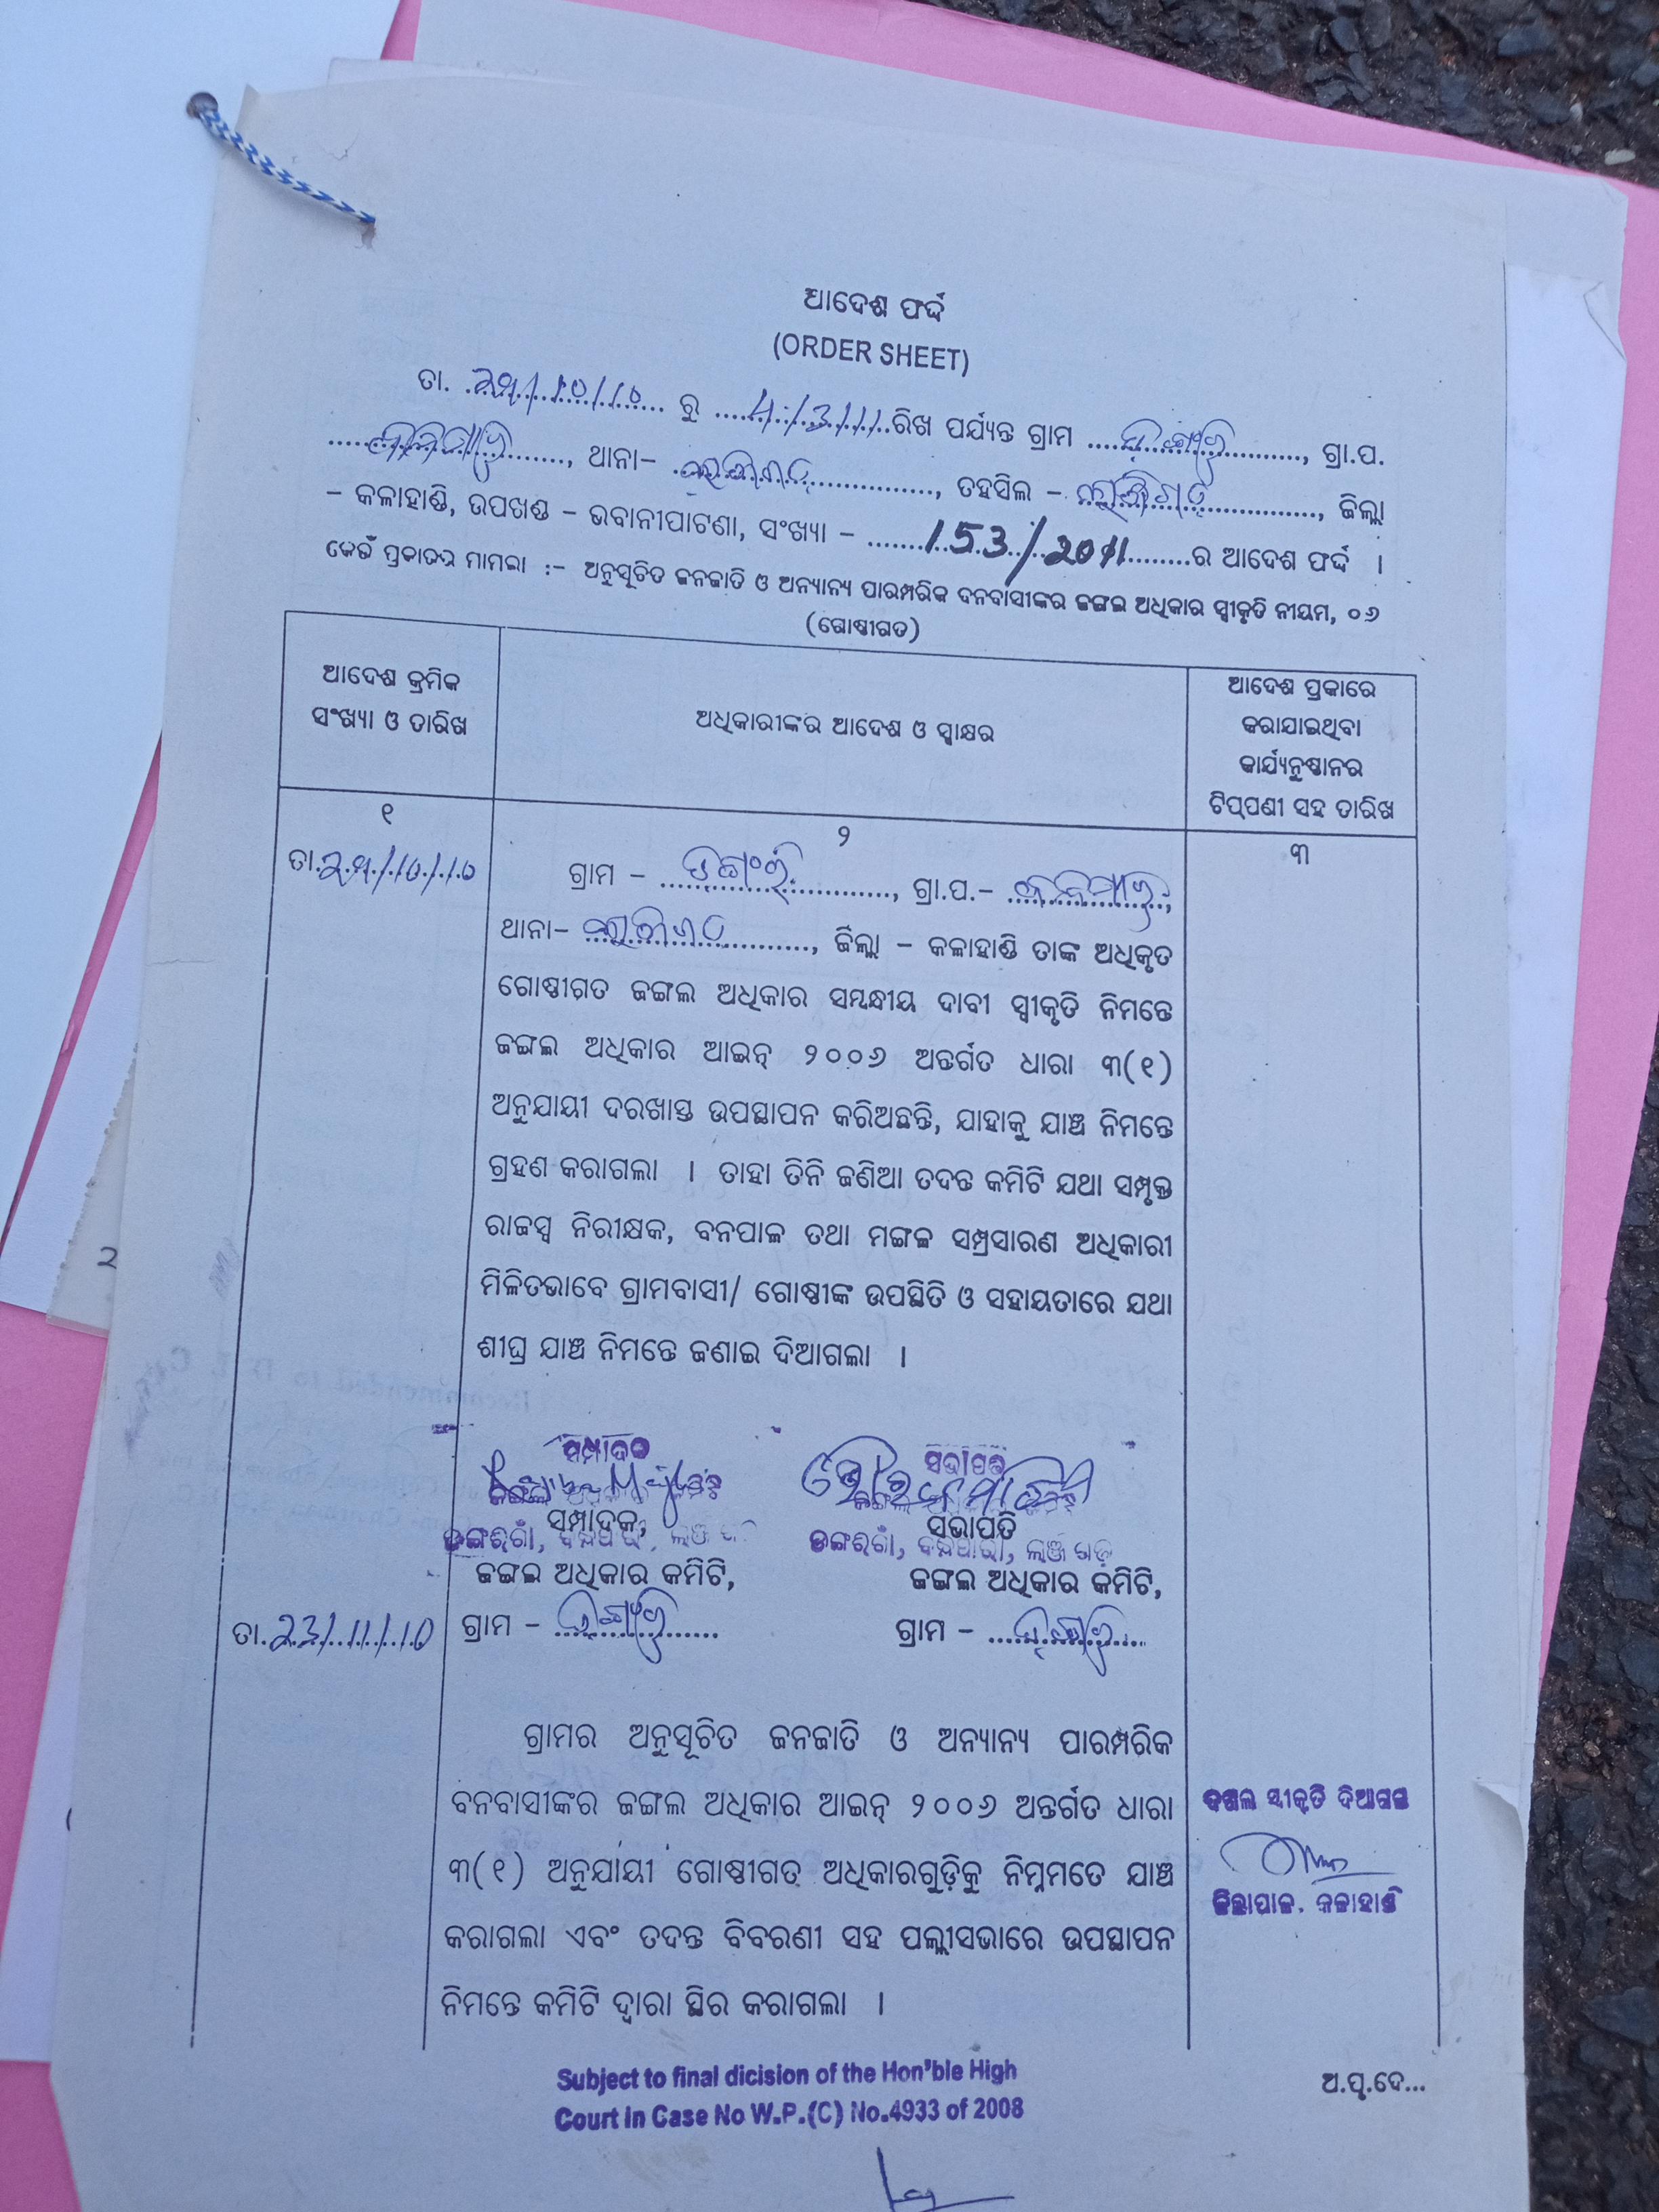 ଆଦେଶ ଫର୍ଦ୍ଦ
(ORDER SHEET)
ତା. 29/10/10 ରୁ 4/3/11 ରିଖ ପର୍ଯ୍ୟନ୍ତ ଗ୍ରାମ , ଗ୍ରା.ପ.
, ଥାନା- , ତହସିଲ - , ଜିଲ୍ଲା
- କଳାହାଣ୍ଡି, ଉପଖଣ୍ଡ - ଭବାନୀପାଟଣା, ସଂଖ୍ୟା - 153/2011 ର ଆଦେଶ ଫର୍ଦ୍ଦ ।
କେଉଁ ପ୍ରକାରର ମାମଲା :- ଅନୁସୂଚିତ ଜନଜାତି ଓ ଅନ୍ୟାନ୍ୟ ପାରମ୍ପରିକ ବନବାସୀଙ୍କର ଜଙ୍ଗଲ ଅଧିକାର ସ୍ୱୀକୃତି ନୀୟମ, ୦୬
(ଗୋଷ୍ଠୀଗତ)
ଆଦେଶ କ୍ରମିକ
ସଂଖ୍ୟା ଓ ତାରିଖ
ଅଧିକାରୀଙ୍କର ଆଦେଶ ଓ ସ୍ୱାକ୍ଷର
ଆଦେଶ ପ୍ରକାରେ
କରାଯାଇଥିବା
କାର୍ଯ୍ୟନୁଷ୍ଠାନର
ଟିପ୍ପଣୀ ସହ ତାରିଖ
୧
୨
୩
ତା. 29/10/10
ଗ୍ରାମ - , ଗ୍ରା.ପ.- ,
ଥାନା- , ଜିଲ୍ଲା - କଳାହାଣ୍ଡି ତାଙ୍କ ଅଧିକୃତ
ଗୋଷ୍ଠୀଗତ ଜଙ୍ଗଲ ଅଧିକାର ସମ୍ବନ୍ଧୀୟ ଦାବୀ ସ୍ୱୀକୃତି ନିମନ୍ତେ
ଜଙ୍ଗଲ ଅଧିକାର ଆଇନ୍ ୨୦୦୬ ଅନ୍ତର୍ଗତ ଧାରା ୩(୧)
ଅନୁଯାୟୀ ଦରଖାସ୍ତ ଉପସ୍ଥାପନ କରିଅଛନ୍ତି, ଯାହାକୁ ଯାଞ୍ଚ ନିମନ୍ତେ
ଗ୍ରହଣ କରାଗଲା । ତାହା ତିନି ଜଣିଆ ତଦନ୍ତ କମିଟି ଯଥା ସମ୍ପୃକ୍ତ
ରାଜସ୍ୱ ନିରୀକ୍ଷକ, ବନପାଳ ତଥା ମଙ୍ଗଳ ସମ୍ପ୍ରସାରଣ ଅଧିକାରୀ
ମିଳିତଭାବେ ଗ୍ରାମବାସୀ/ ଗୋଷ୍ଠୀଙ୍କ ଉପସ୍ଥିତି ଓ ସହାୟତାରେ ଯଥା
ଶୀଘ୍ର ଯାଞ୍ଚ ନିମନ୍ତେ ଜଣାଇ ଦିଆଗଲା ।
ସମ୍ପାଦକ ସଭାପତି
ସମ୍ପାଦକ, ସଭାପତି
ଜଙ୍ଗଲ ଅଧିକାର କମିଟି, ଜଙ୍ଗଲ ଅଧିକାର କମିଟି,
ତା. 23/11/10
ଗ୍ରାମ - ଗ୍ରାମ -
ଗ୍ରାମର ଅନୁସୂଚିତ ଜନଜାତି ଓ ଅନ୍ୟାନ୍ୟ ପାରମ୍ପରିକ
ବନବାସୀଙ୍କର ଜଙ୍ଗଲ ଅଧିକାର ଆଇନ୍ ୨୦୦୬ ଅନ୍ତର୍ଗତ ଧାରା
୩(୧) ଅନୁଯାୟୀ ଗୋଷ୍ଠୀଗତ ଅଧିକାରଗୁଡ଼ିକୁ ନିମ୍ନମତେ ଯାଞ୍ଚ
କରାଗଲା ଏବଂ ତଦନ୍ତ ବିବରଣୀ ସହ ପଲ୍ଲୀସଭାରେ ଉପସ୍ଥାପନ
ନିମନ୍ତେ କମିଟି ଦ୍ୱାରା ସ୍ଥିର କରାଗଲା ।
ଦଖଲ ସ୍ୱୀକୃତି ଦିଆଗଲା
ଜିଲ୍ଲାପାଳ, କଳାହାଣ୍ଡି
Subject to final dicision of the Hon'ble High
Court in Case No W.P.(C) No.4933 of 2008
ଅ.ପୃ.ଦେ...